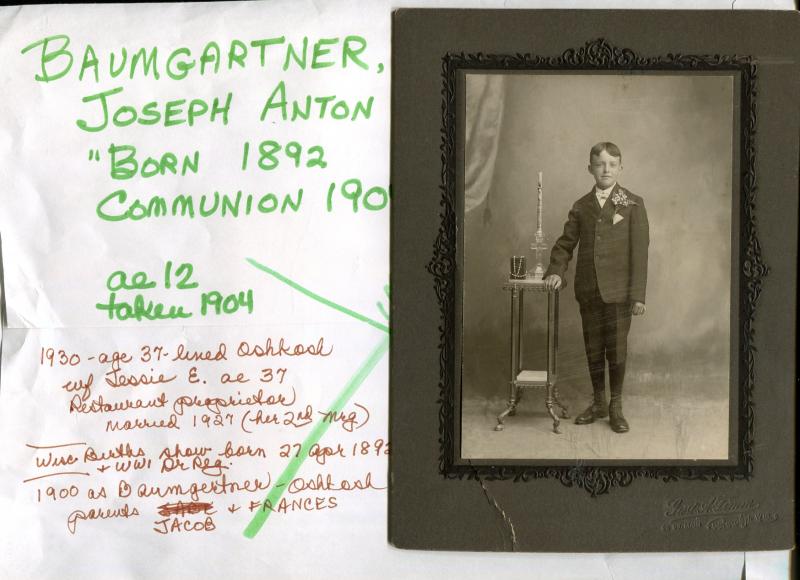 BAUMGARTNER,
JOSEPH ANTON
"BORN 1892
COMMUNION 190
ae 12
taken 1904
1930 - age 37 - lived Oshkosh
w/ Jessie E. ae 37
Restaurant proprietor
married 1927 (her 2nd mrg)
Wisc Births show born 27 apr 1892
+ WW1 Dr Reg.
1900 as Baumgertner - Oshkosh
parents & FRANCES
JACOB